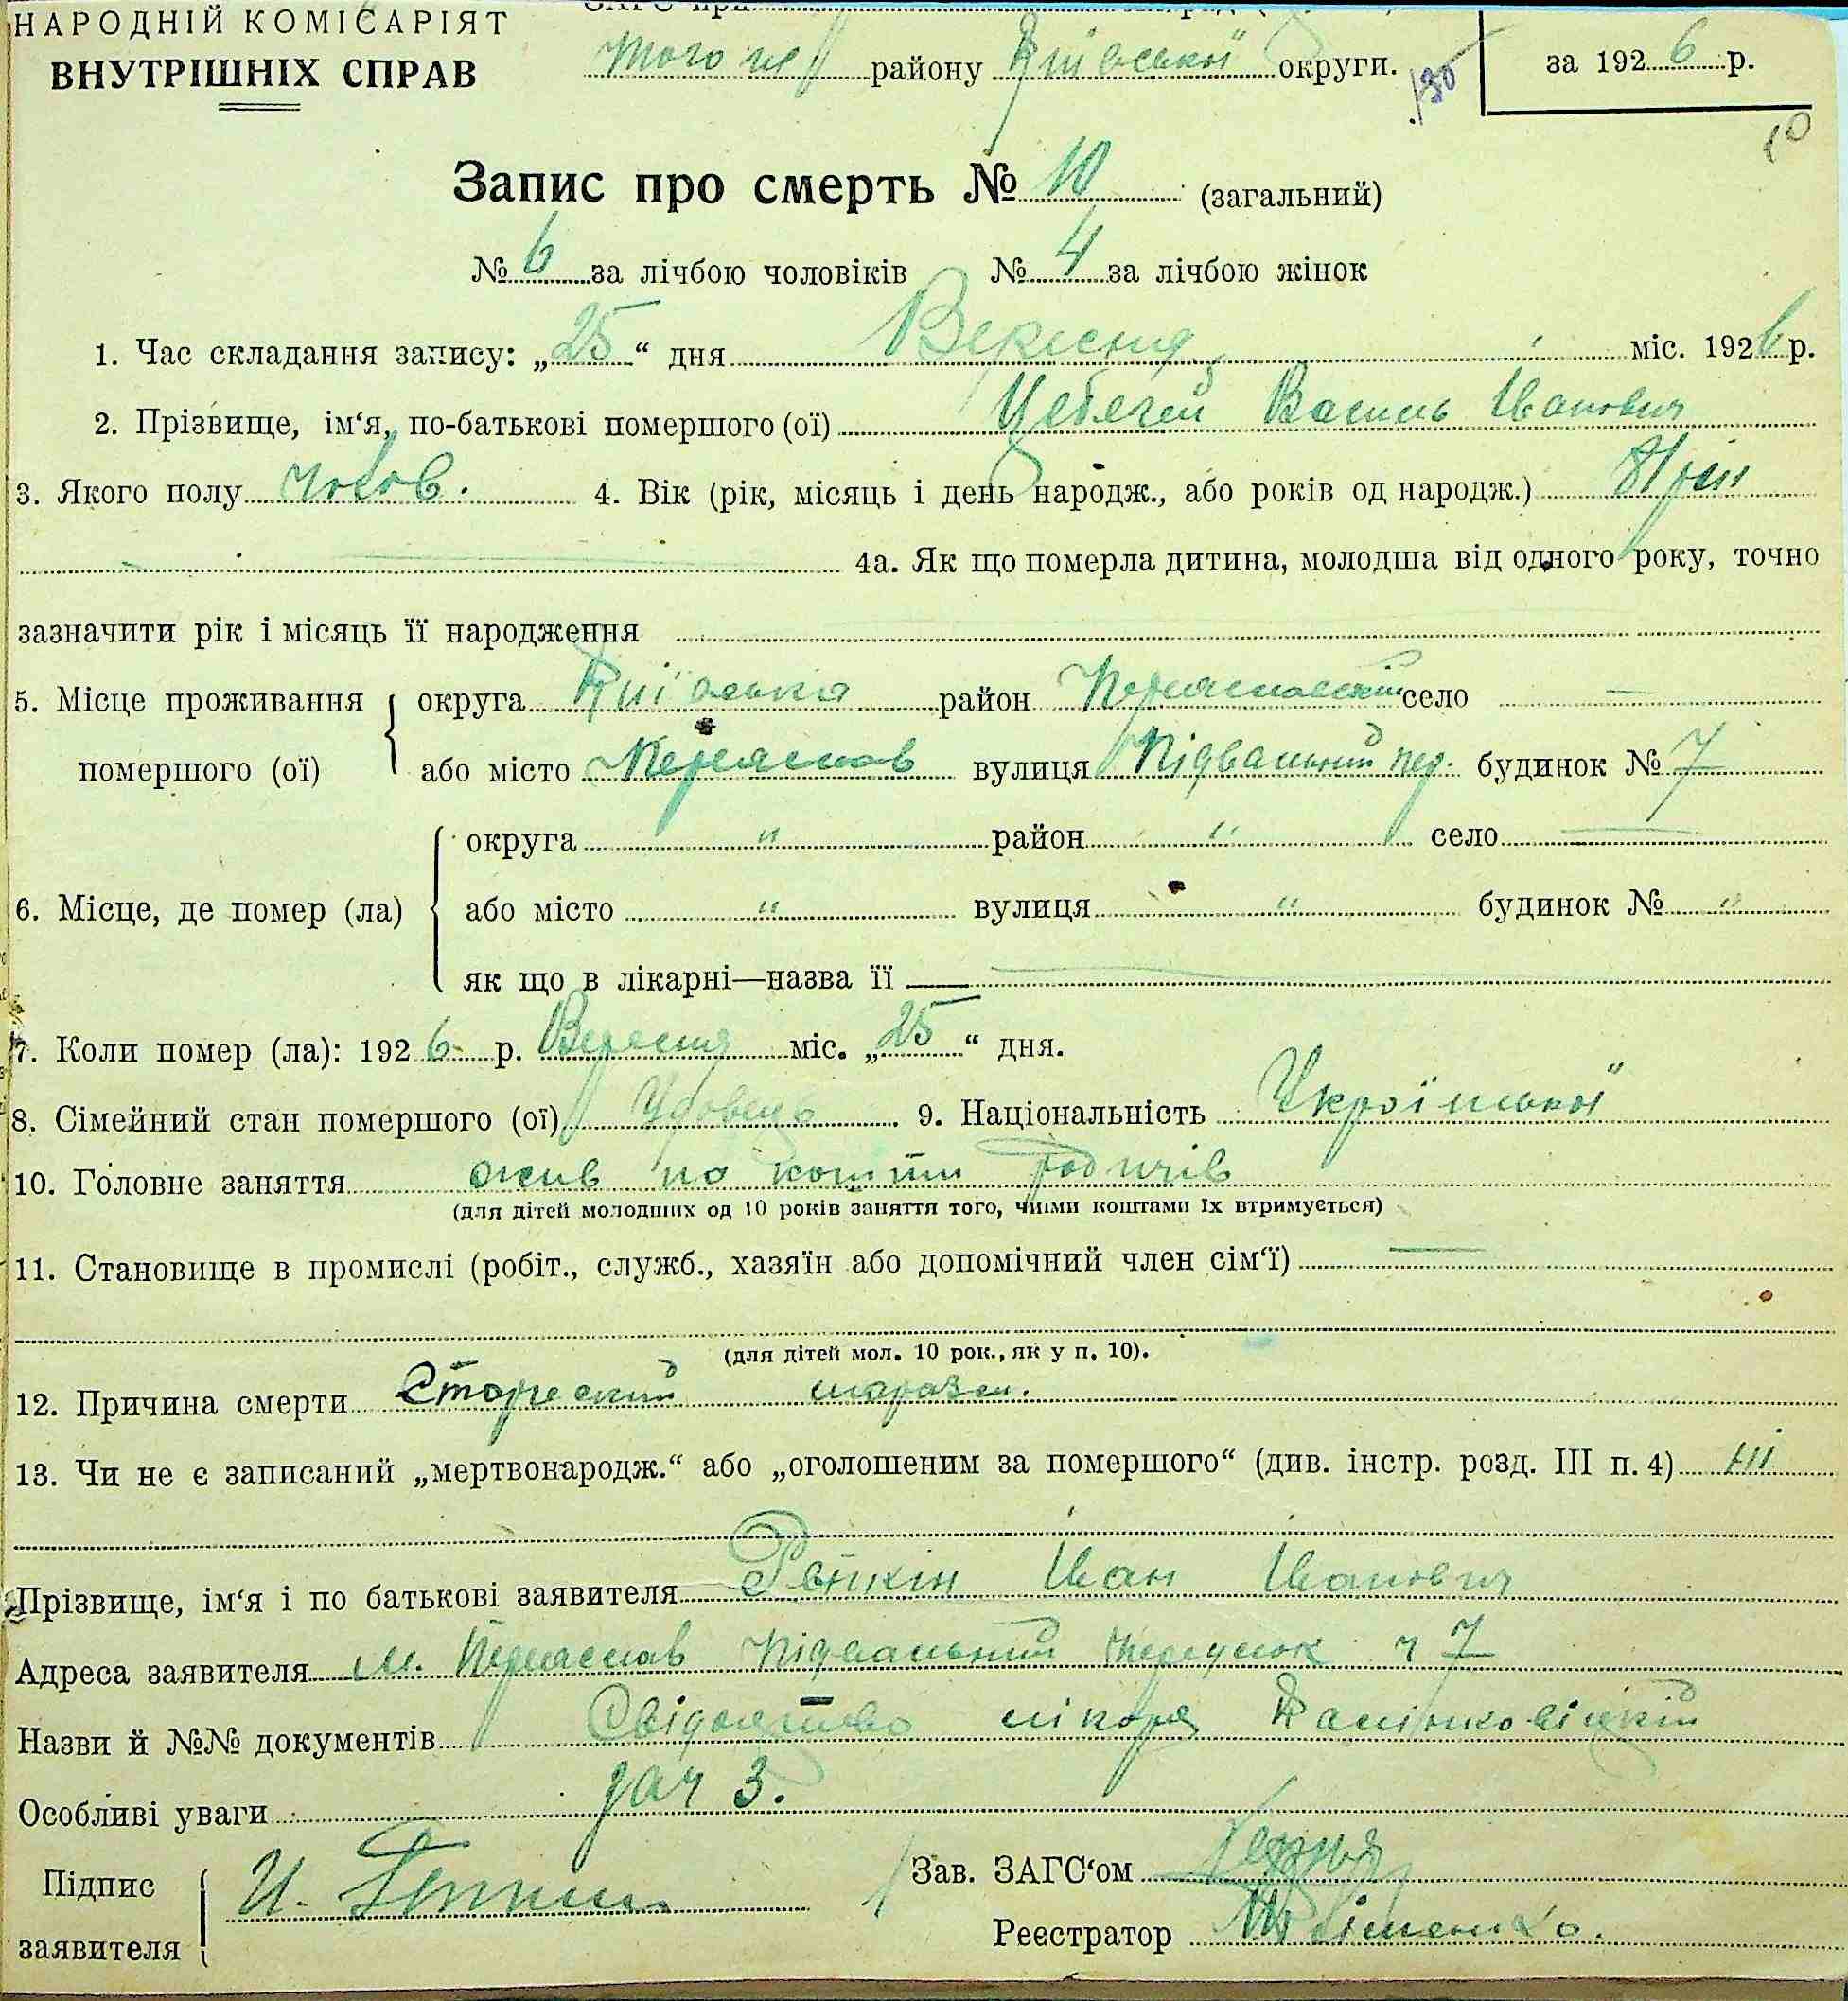 НАРОДНІЙ КОМІСАРІЯТ
ВНУТРІШНІХ СПРАВ
того ж району Київської округи.
за 1926 р.
10
Запис про смерть № 10 (загальний)
№ 6 за лічбою чоловіків № 4 за лічбою жінок
1. Час складання запису: „25“ дня Вересня міс. 1926 р.
2. Прізвище, ім‘я, по-батькові помершого (ої) Василь Іванович
3. Якого полу чолов. 4. Вік (рік, місяць і день народж., або років од народж.) 81 рік
4а. Як що померла дитина, молодша від одного року, точно
зазначити рік і місяць її народження
5. Місце проживання помершого (ої) округа Київська район Переяславський село —
або місто Переяслав вулиця Підвальний пер. будинок № 7
6. Місце, де помер (ла) округа " район " село —
або місто " вулиця " будинок № "
як що в лікарні—назва її —
7. Коли помер (ла): 1926 р. Вересня міс. „25“ дня.
8. Сімейний стан помершого (ої) Удовець 9. Національність Української
10. Головне заняття жив на кошти родичів
(для дітей молодших од 10 років заняття того, чиїми коштами їх втримується)
11. Становище в промислі (робіт., служб., хазяїн або допомічний член сім‘ї) —
(для дітей мол. 10 рок., як у п. 10).
12. Причина смерти Старечий маразм.
13. Чи не є записаний „мертвонародж.“ або „оголошеним за помершого“ (див. інстр. розд. III п. 4) ні
Прізвище, ім‘я і по батькові заявителя Іван Іванович
Адреса заявителя м. Переяслав Підвальний переулок ч 7
Назви й №№ документів Свідоцтво лікаря
Особливі уваги за ч 3.
Підпис заявителя И.
Зав. ЗАГС‘ом
Реєстратор